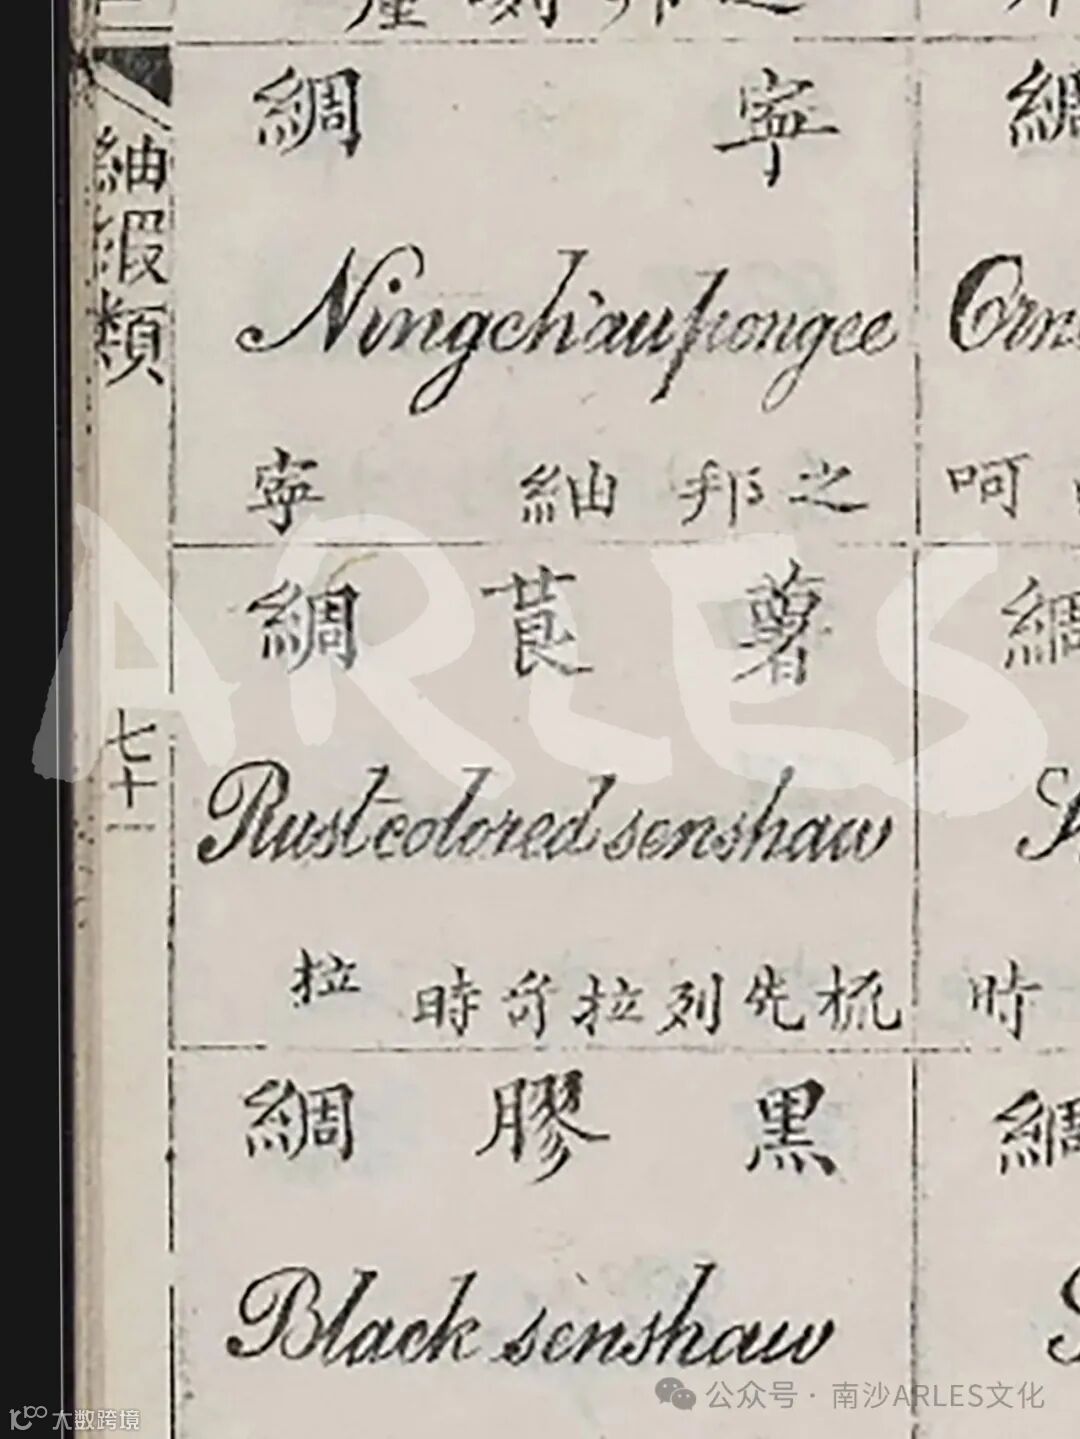 綢 寍
Ningch'au pongee
寍 紬 邦 之
呵
綢 莨 薯
Rust colored senshaw
拉 時 唦 拉 列 先 梳
時
綢 膠 黑
Black senshaw
綢
Orn
綢
綢
紬緞類
七十一
ARLES
公众号·南沙ARLES文化
大数跨境